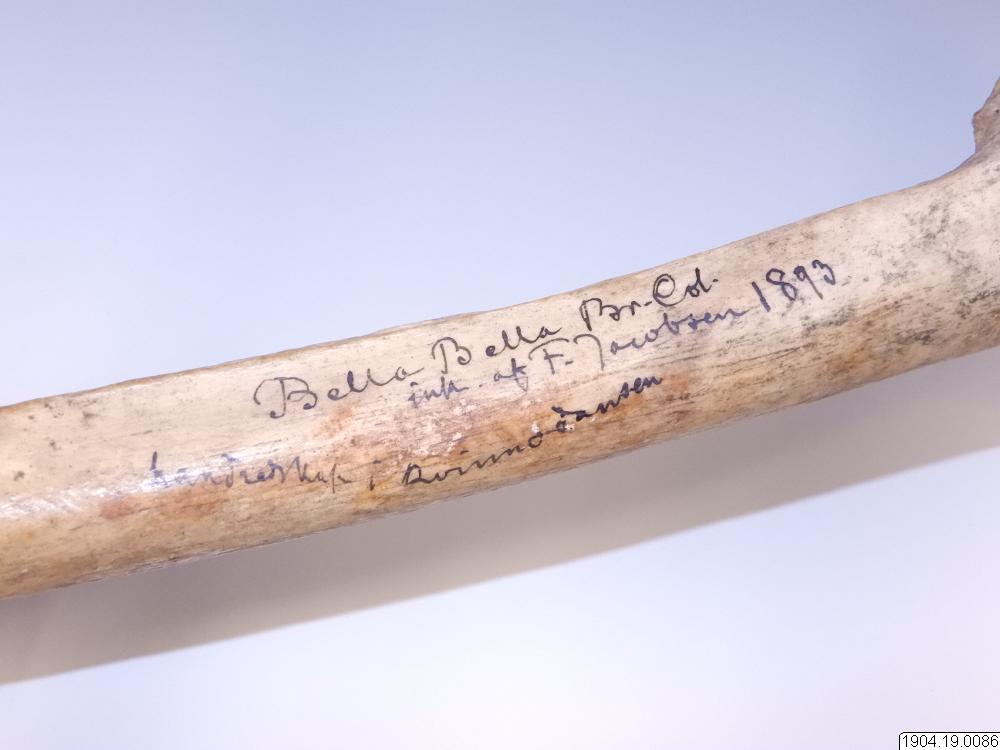 Bella Bella Br. Col.
ink. af F. Jacobsen 1893
handredskap i kvinnodansen
1904.19.0086